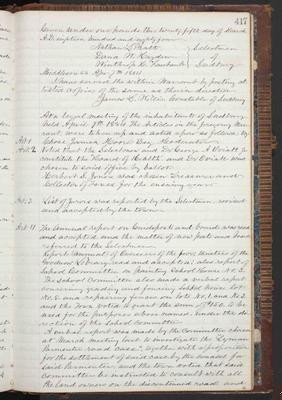 417
Given under our hands this twenty fifth day of March
A.D. eighteen hundred and eighty four
Selectmen
of
Sudbury
Middlesex ss Apr 7th 1884
I have served the within Warrant by posting at-
tested copies of the same as therein directed
Constable of Sudbury
At a legal meeting of the inhabitants of Sudbury
held April 7th 1884 The Articles in the foregoing War-
rant were taken up and acted upon as follows by:
Art. 1 Chose Moderator
Art. 2 Voted that the Selectmen and Dr George A Oviatt
constitute the Board of Health and Dr Oviatt was
chosen to said office by ballot.
was chosen Treasurer and
Collector of Taxes for the ensuing year
Art. 3 List of Jurors was reported by the Selectmen, revised
and accepted by the town
Art. 11 The Annual report on Guideposts and Guideboards was
read and accepted and the matter of new posts and boards
referred to the Selectmen
of the Trustees of the
Goodnow Library read and also report of
School Committee on painting School House No 3.
The School Committee also made a verbal report
concerning grading and fencing School House lot
No. 2 and repairing fences on lots No 1 and No 3
and the town voted to grant the sum of $150. to be
used for the purposes above named under the di-
rection of the School Committee
A verbal report was made by the Committee chosen
at March meeting last to investigate the Lyman
Parmenter road case, together with a proposition
for the settlement of said case by the counsel for
said Parmenter, and the town voted that said
Committee be instructed to consult with all
the land owners on the discontinued road and